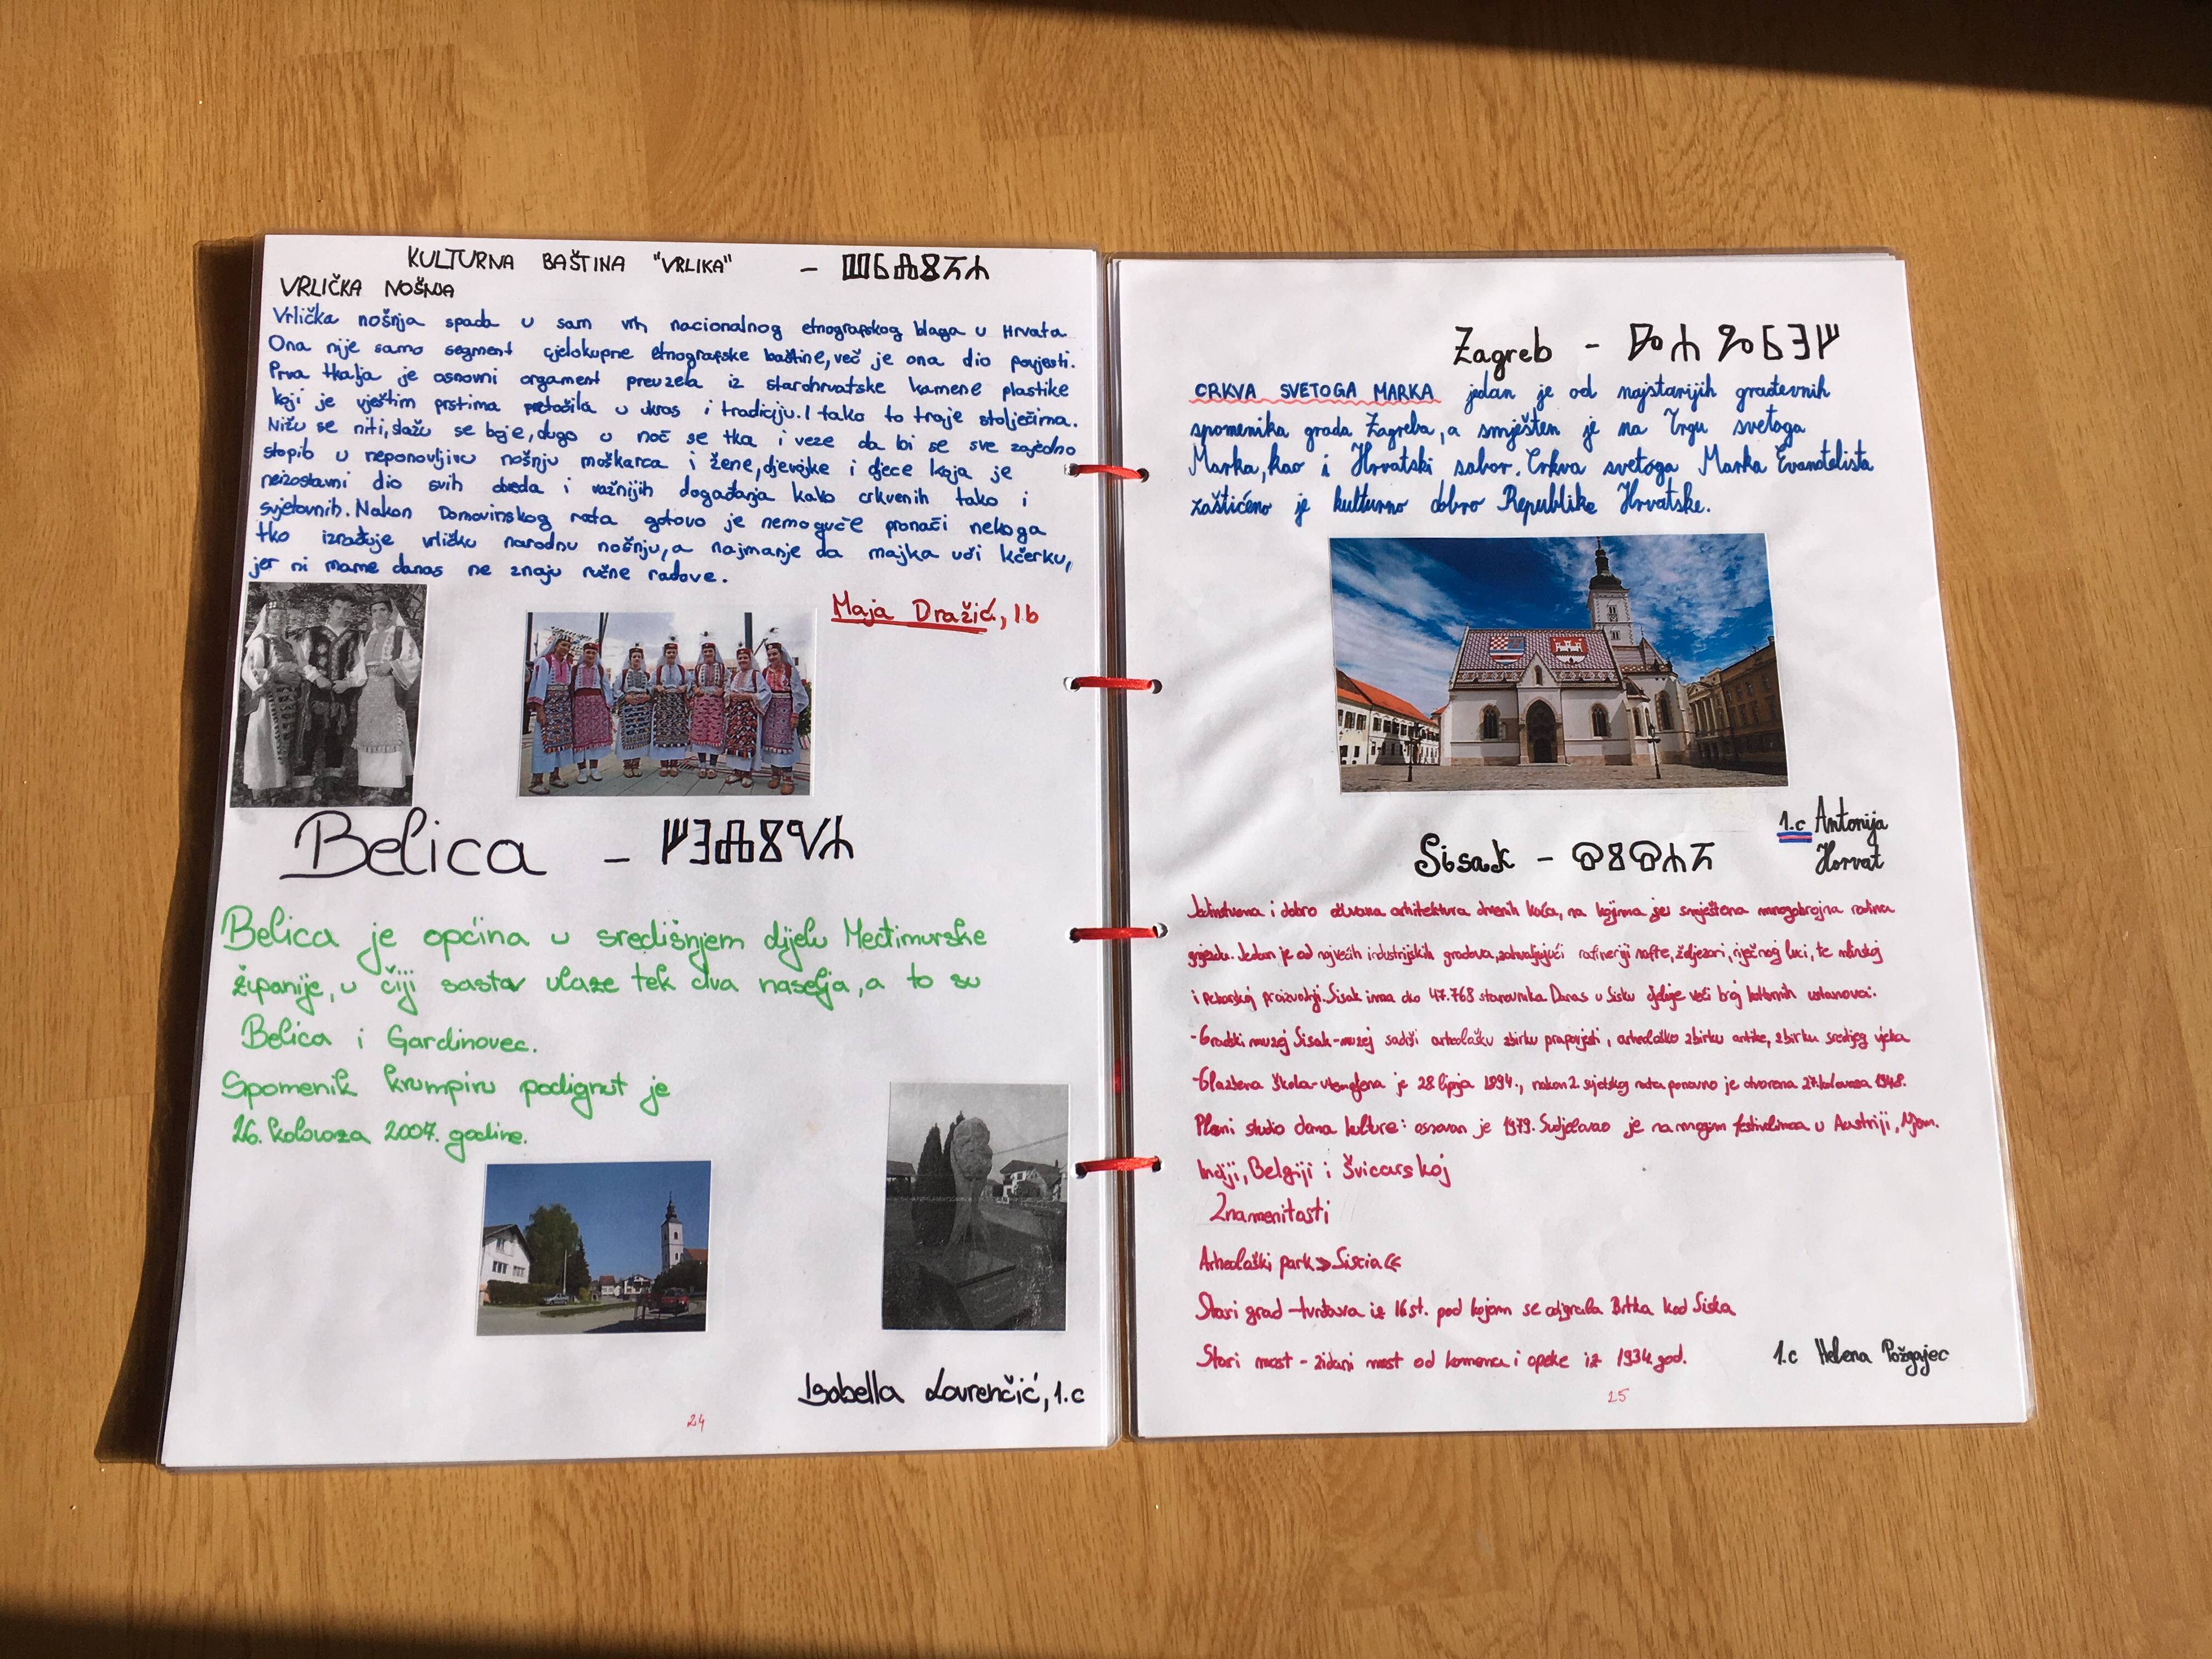 KULTURNA BAŠTINA "VRLIKA" – ⰂⰓⰎⰋⰍⰀ
VRLIČKA NOŠNJA
Vrlička nošnja spada u sam vrh nacionalnog etnografskog blaga u Hrvata
Ona nije samo segment cjelokupne etnografske baštine, već je ona dio povjesti.
Prva tkalja je osnovni orgament preuzela iz starohrvatske kamene plastike
koji je vještim prstima pretočila u ukras i tradiciju. I tako to traje stoljećima.
Nižu se niti, slažu se boje, dugo u noć se tka i veze da bi se sve zajedno
stopib u neponovljivu nošnju moškarca i žene, djevojke i djece koja je
neizostavni dio svih obreda i važnijih događanja kako crkvenih tako i
svjetovnih. Nakon Domovinskog rata gotovo je nemoguće pronaći nekoga
tko izrađuje vrličku narodnu nošnju, a najmanje da majka uči kčerku,
jer ni mame danas ne znaju ručne radove.
Maja Dražić, 1.b
Belica – ⰁⰅⰎⰋⰜⰀ
Belica je općina u središnjem dijelu Međimurske
županije, u čiji sastav ulaze tek dva naselja, a to su
Belica i Gardinovec.
Spomenik krumpiru podignut je
26. kolovoza 2007. godine.
Isabella Lovrenčić, 1.c
24
Zagreb – ⰈⰀⰃⰓⰅⰁ
CRKVA SVETOGA MARKA jedan je od najstarijih građevnih
spomenika grada Zagreba, a smješten je na Trgu svetoga
Marka, kao i Hrvatski sabor. Crkva svetoga Marka Evanđelista
zaštićeno je kulturno dobro Republike Hrvatske.
1.c Antonija
Horvat
Sisak – ⰔⰋⰔⰀⰍ
Jedinstvena i dobro očuvana arhitektura drvenih kuća, na kojima je smještena mnogobrojna rodina
gnijezda. Jedan je od najvećih industrijskih gradova, zahvaljujući rafineriji nafte, željezari, riječnoj luci, te mlinskoj
i pekarskoj proizvodnji. Sisak ima oko 47.768 stanovnika Danas u Sisku djeluje veći broj kulturnih ustanova:
- Gradski muzej Sisak - muzej sadrži arheolašku zbirku prapovjesti, arheološku zbirku antike, zbirku srednjeg vjeka
- Glazbena škola - utemeljena je 28 lipnja 1894., nakon 2. svjetskog rata ponovno je otvorena 27. kolovoza 1948.
Plesni studio doma kulture: osnovan je 1979. Sudjelovao je na mnogim festivalima u Austriji, Njem.
Indiji, Belgiji i Švicarskoj
Znamenitosti
Arheolaški park »Siscia«
Stari grad - tvrđava iz 16 st. pod kojom se odigrala Bitka kod Siska
Stari most - zidani most od kamena i opeke iz 1934. god.
1.c Helena Požgajec
25